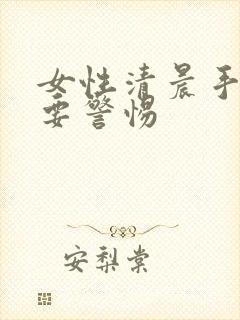 女性清晨手
要警惕
安梨棠